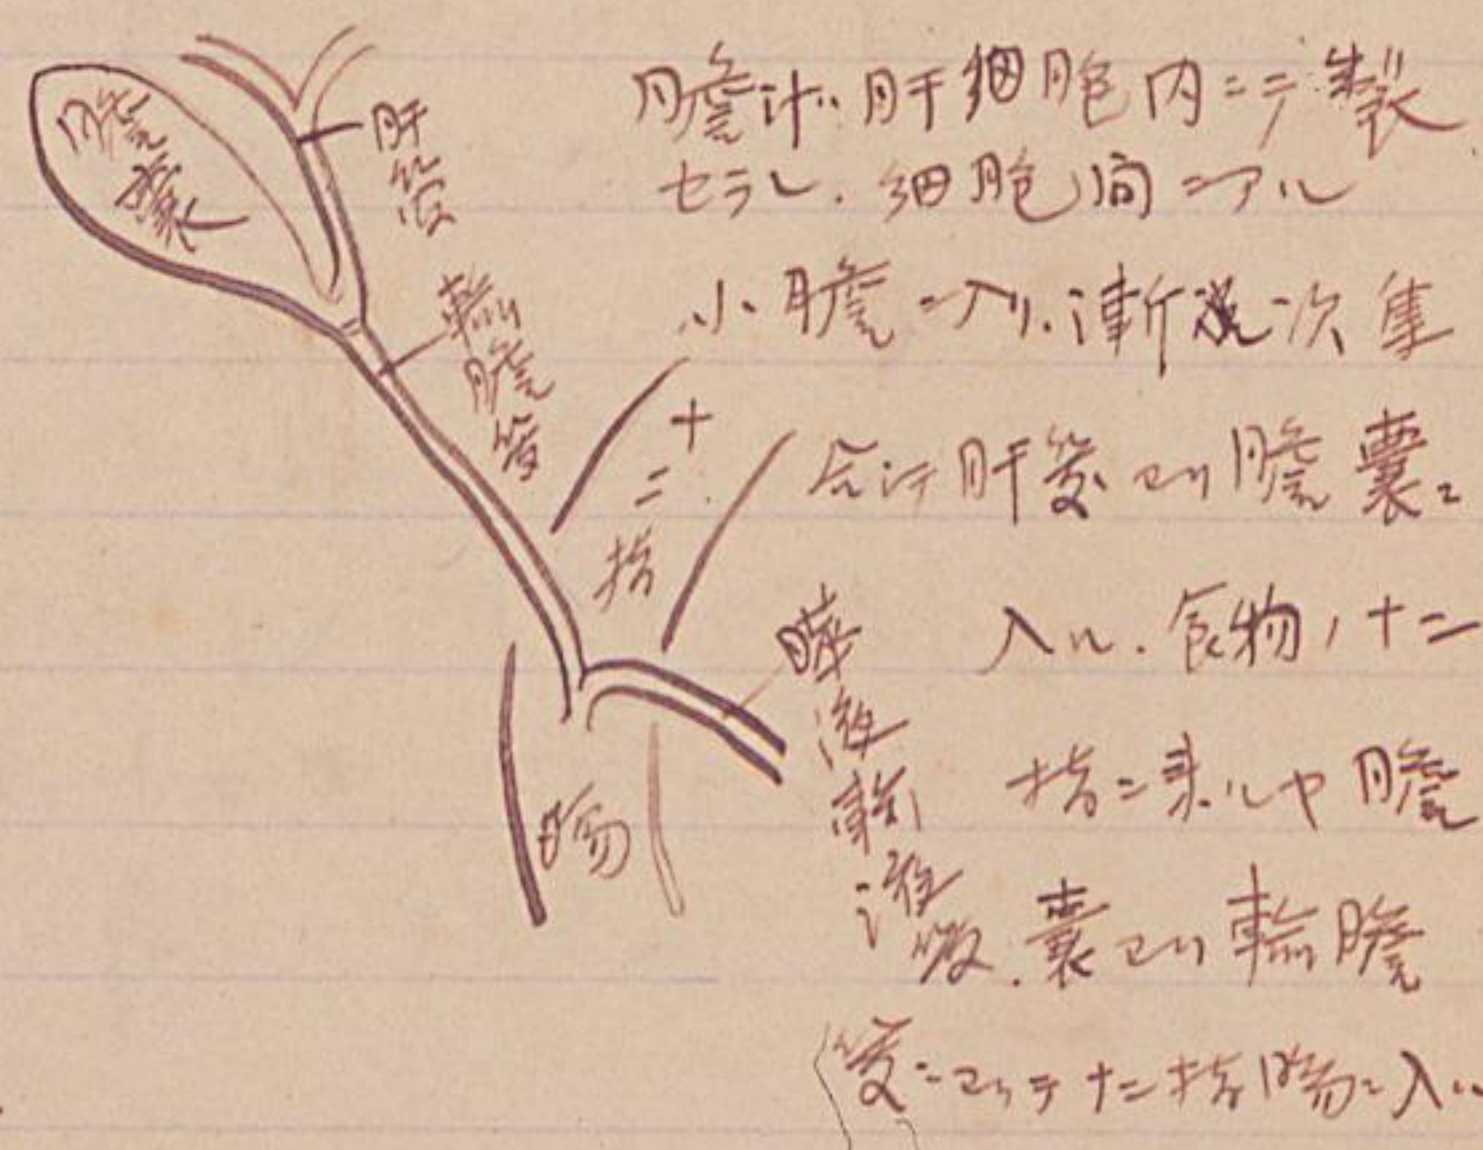 胆嚢
肝管
輸胆管
十二指
腸
膵液輸液管
胆汁ハ肝細胞内ニテ製
セラレ.細胞間ニアル
小胆ニ入リ.漸次集
合シテ肝管ヨリ胆嚢ニ
入ル.食物ノ十二
指ニ来ルヤ胆
嚢ヨリ輸胆
管ニヨッテ十二指腸ニ入ル